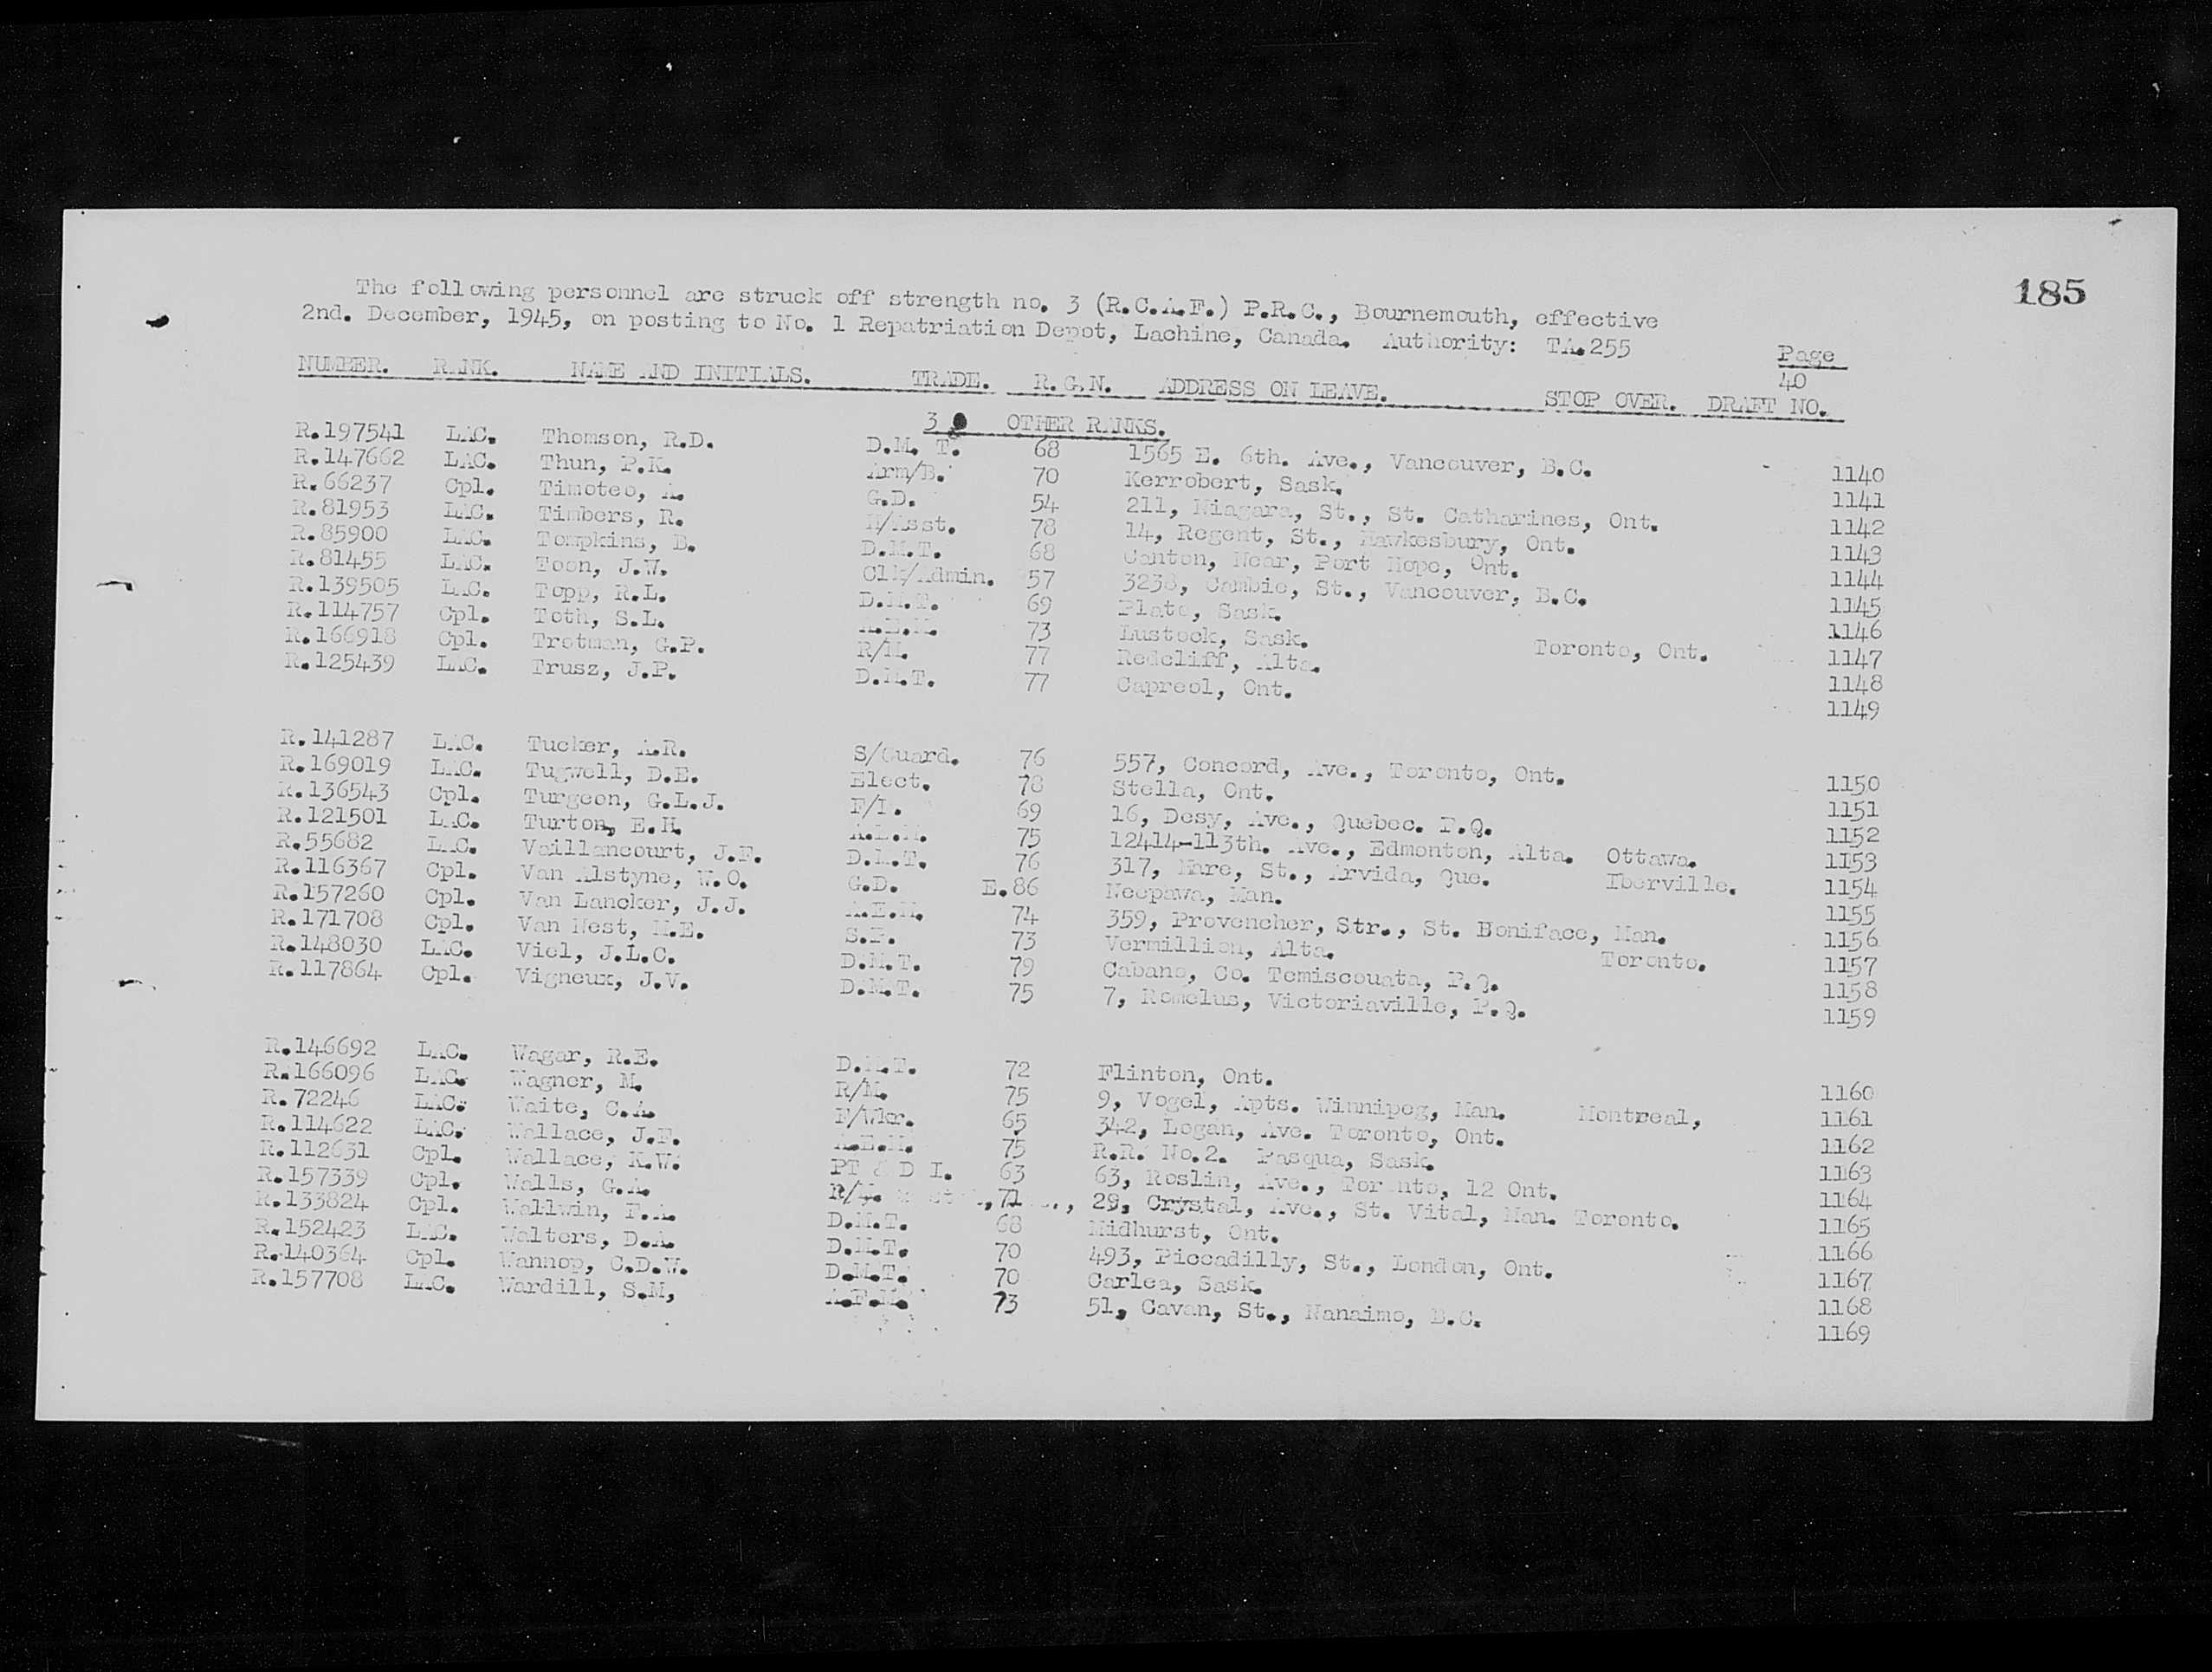 185
The following personnel are struck off strength no. 3 (R.C.A.F.) P.R.C., Bournemouth, effective
2nd. December, 1945, on posting to No. 1 Repatriation Depot, Lachine, Canada. Authority: TA.255
Page
40
NUMBER. RANK. NAME AND INITIALS. TRADE. R.G.N. ADDRESS ON LEAVE. STOP OVER. DRAFT NO.
3 OTHER RANKS.
R.197541 LAC. Thomson, R.D. D.M. T. 68 1565 E. 6th. Ave., Vancouver, B.C. 1140
R.147662 LAC. Thun, P.K. Arm/B. 70 Kerrobert, Sask. 1141
R.66237 Cpl. Timoteo, A. G.D. 54 211, Niagara, St., St. Catharines, Ont. 1142
R.81953 LAC. Timbers, R. N/Asst. 78 14, Regent, St., Hawkesbury, Ont. 1143
R.85900 LAC. Tompkins, B. D.M.T. 68 Canton, Near, Port Hope, Ont. 1144
R.81455 LAC. Toon, J.W. Clk/Admin. 57 3238, Cambie, St., Vancouver, B.C. 1145
R.139505 LAC. Topp, R.L. D.M.T. 69 Plato, Sask. 1146
R.114757 Cpl. Toth, S.L. A.E.M. 73 Lustock, Sask. Toronto, Ont. 1147
R.166918 Cpl. Trotman, G.P. R/M. 77 Redcliff, Alta. 1148
R.125439 LAC. Trusz, J.P. D.M.T. 77 Capreol, Ont. 1149
R.141287 LAC. Tucker, A.R. S/Guard. 76 557, Concord, Ave., Toronto, Ont. 1150
R.169019 LAC. Tugwell, D.E. Elect. 78 Stella, Ont. 1151
R.136543 Cpl. Turgeon, G.L.J. F/I. 69 16, Desy, Ave., Quebec. P.Q. 1152
R.121501 LAC. Turton, E.H. A.E.M. 75 12414-113th. Ave., Edmonton, Alta. Ottawa. 1153
R.55682 LAC. Vaillancourt, J.F. D.M.T. 76 317, Mare, St., Arvida, Que. Iberville. 1154
R.116367 Cpl. Van Alstyne, W.O. G.D. E.86 Neepawa, Man. 1155
R.157260 Cpl. Van Lancker, J.J. A.E.M. 74 359, Provencher, Str., St. Boniface, Man. 1156
R.171708 Cpl. Van Nest, M.E. S.P. 73 Vermillion, Alta. Toronto. 1157
R.148030 LAC. Viel, J.L.C. D.M.T. 79 Cabano, Co. Temiscouata, P.Q. 1158
R.117864 Cpl. Vigneux, J.V. D.M.T. 75 7, Romolus, Victoriaville, P.Q. 1159
R.146692 LAC. Wagar, R.E. D.M.T. 72 Flinton, Ont. 1160
R.166096 LAC. Wagner, M. R/M. 75 9, Vogel, Apts. Winnipeg, Man. Montreal, 1161
R.72246 LAC. Waite, C.A. F/Wkr. 65 342, Logan, Ave. Toronto, Ont. 1162
R.114622 LAC. Wallace, J.F. A.E.M. 75 R.R. No.2. Pasqua, Sask. 1163
R.112631 Cpl. Wallace, K.W. PT & D I. 63 63, Roslin, Ave., Toronto, 12 Ont. 1164
R.157339 Cpl. Walls, G.A. 71 29, Crystal, Ave., St. Vital, Man. Toronto. 1165
R.133824 Cpl. Wallwin, F.A. D.M.T. 68 Midhurst, Ont. 1166
R.152423 LAC. Walters, D.A. D.M.T. 70 493, Piccadilly, St., London, Ont. 1167
R.140364 Cpl. Wannop, C.D.W. D.M.T. 70 Carlea, Sask. 1168
R.157708 LAC. Wardill, S.M, A.F.M. 73 51, Cavan, St., Nanaimo, B.C. 1169